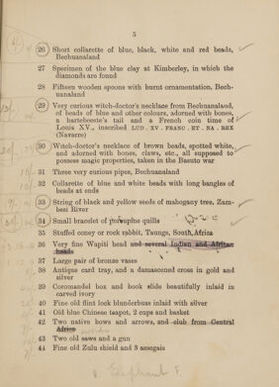 5
26 Short collarette of blue, black, white and red beads,
Bechuanaland
27 Specimen of the blue clay at Kimberley, in which the
diamonds are found
28 Fifteen wooden spoons with burnt ornamentation, Bech-
uanaland
29 Very curious witch-doctor's necklace from Bechuanaland,
of beads of blue and other colours, adorned with bones,
a hartebeeste's tail and a French coin time of
Louis XV., inscribed LUD. XV. FRANC. ET. NA. REX
(Navarre)
30 Witch-doctor's necklace of brown beads, spotted white,
and adorned with bones, claws, etc., all supposed to
possess magic properties, taken in the Basuto war
31 Three very curious pipes, Bechuanaland
32 Collarette of blue and white beads with long bangles of
beads at ends
33 String of black and yellow seeds of mahogany tree, Zam-
besi River
34 Small bracelet of porcupine quills
35 Stuffed coney or rock rabbit, Taungs, South Africa
36 Very fine Wapiti head and several Indian and African
heads
37 Large pair of bronze vases
38 Antique card tray, and a damascened cross in gold and
silver
39 Coromandel box and book slide beautifully inlaid in
carved ivory
40 Fine old flint lock blunderbuss inlaid with silver
41 Old blue Chinese teapot, 2 cups and basket
42 Two native bows and arrows, and club from Central
Africa
43 Two old saws and a gun
44 Fine old Zulu shield and 3 assegais
Elephant F.